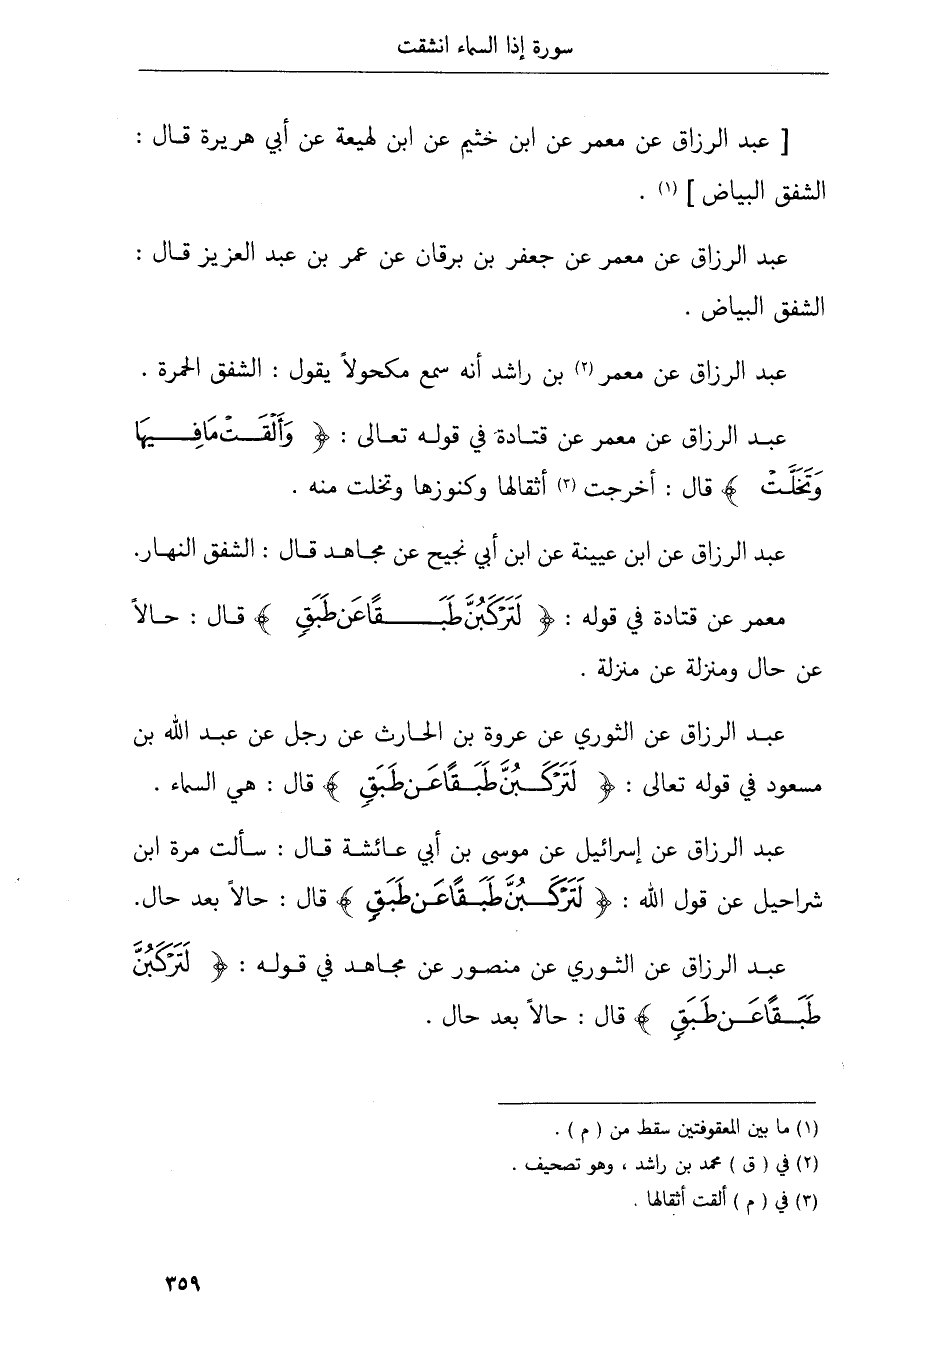 سورة إذا السماء انشقت
[ عبد الرزاق عن معمر عن ابن خثيم عن ابن لهيعة عن أبي هريرة قال :
الشفق البياض ] (١) .
عبد الرزاق عن معمر عن جعفر بن برقان عن عمر بن عبد العزيز قال :
الشفق البياض .
عبد الرزاق عن معمر (٢) بن راشد أنه سمع مكحولاً يقول : الشفق الحمرة .
عبد الرزاق عن معمر عن قتادة في قوله تعالى : ﴿ وَأَلْقَتْ مَا فِيهَا
وَتَخَلَّتْ ﴾ قال : أخرجت (٣) أثقالها وكنوزها وتخلت منه .
عبد الرزاق عن ابن عيينة عن ابن أبي نجيح عن مجاهد قال : الشفق النهار.
معمر عن قتادة في قوله : ﴿ لَتَرْكَبُنَّ طَبَقًا عَن طَبَقٍ ﴾ قال : حالاً
عن حال ومنزلة عن منزلة .
عبد الرزاق عن الثوري عن عروة بن الحارث عن رجل عن عبد الله بن
مسعود في قوله تعالى : ﴿ لَتَرْكَبُنَّ طَبَقًا عَن طَبَقٍ ﴾ قال : هي السماء .
عبد الرزاق عن إسرائيل عن موسى بن أبي عائشة قال : سألت مرة ابن
شراحيل عن قول الله : ﴿ لَتَرْكَبُنَّ طَبَقًا عَن طَبَقٍ ﴾ قال : حالاً بعد حال.
عبد الرزاق عن الثوري عن منصور عن مجاهد في قوله : ﴿ لَتَرْكَبُنَّ
طَبَقًا عَن طَبَقٍ ﴾ قال : حالاً بعد حال .
(١) ما بين المعقوفتين سقط من ( م ) .
(٢) في ( ق ) محمد بن راشد ، وهو تصحيف .
(٣) في ( م ) ألقت أثقالها .
٣٥٩